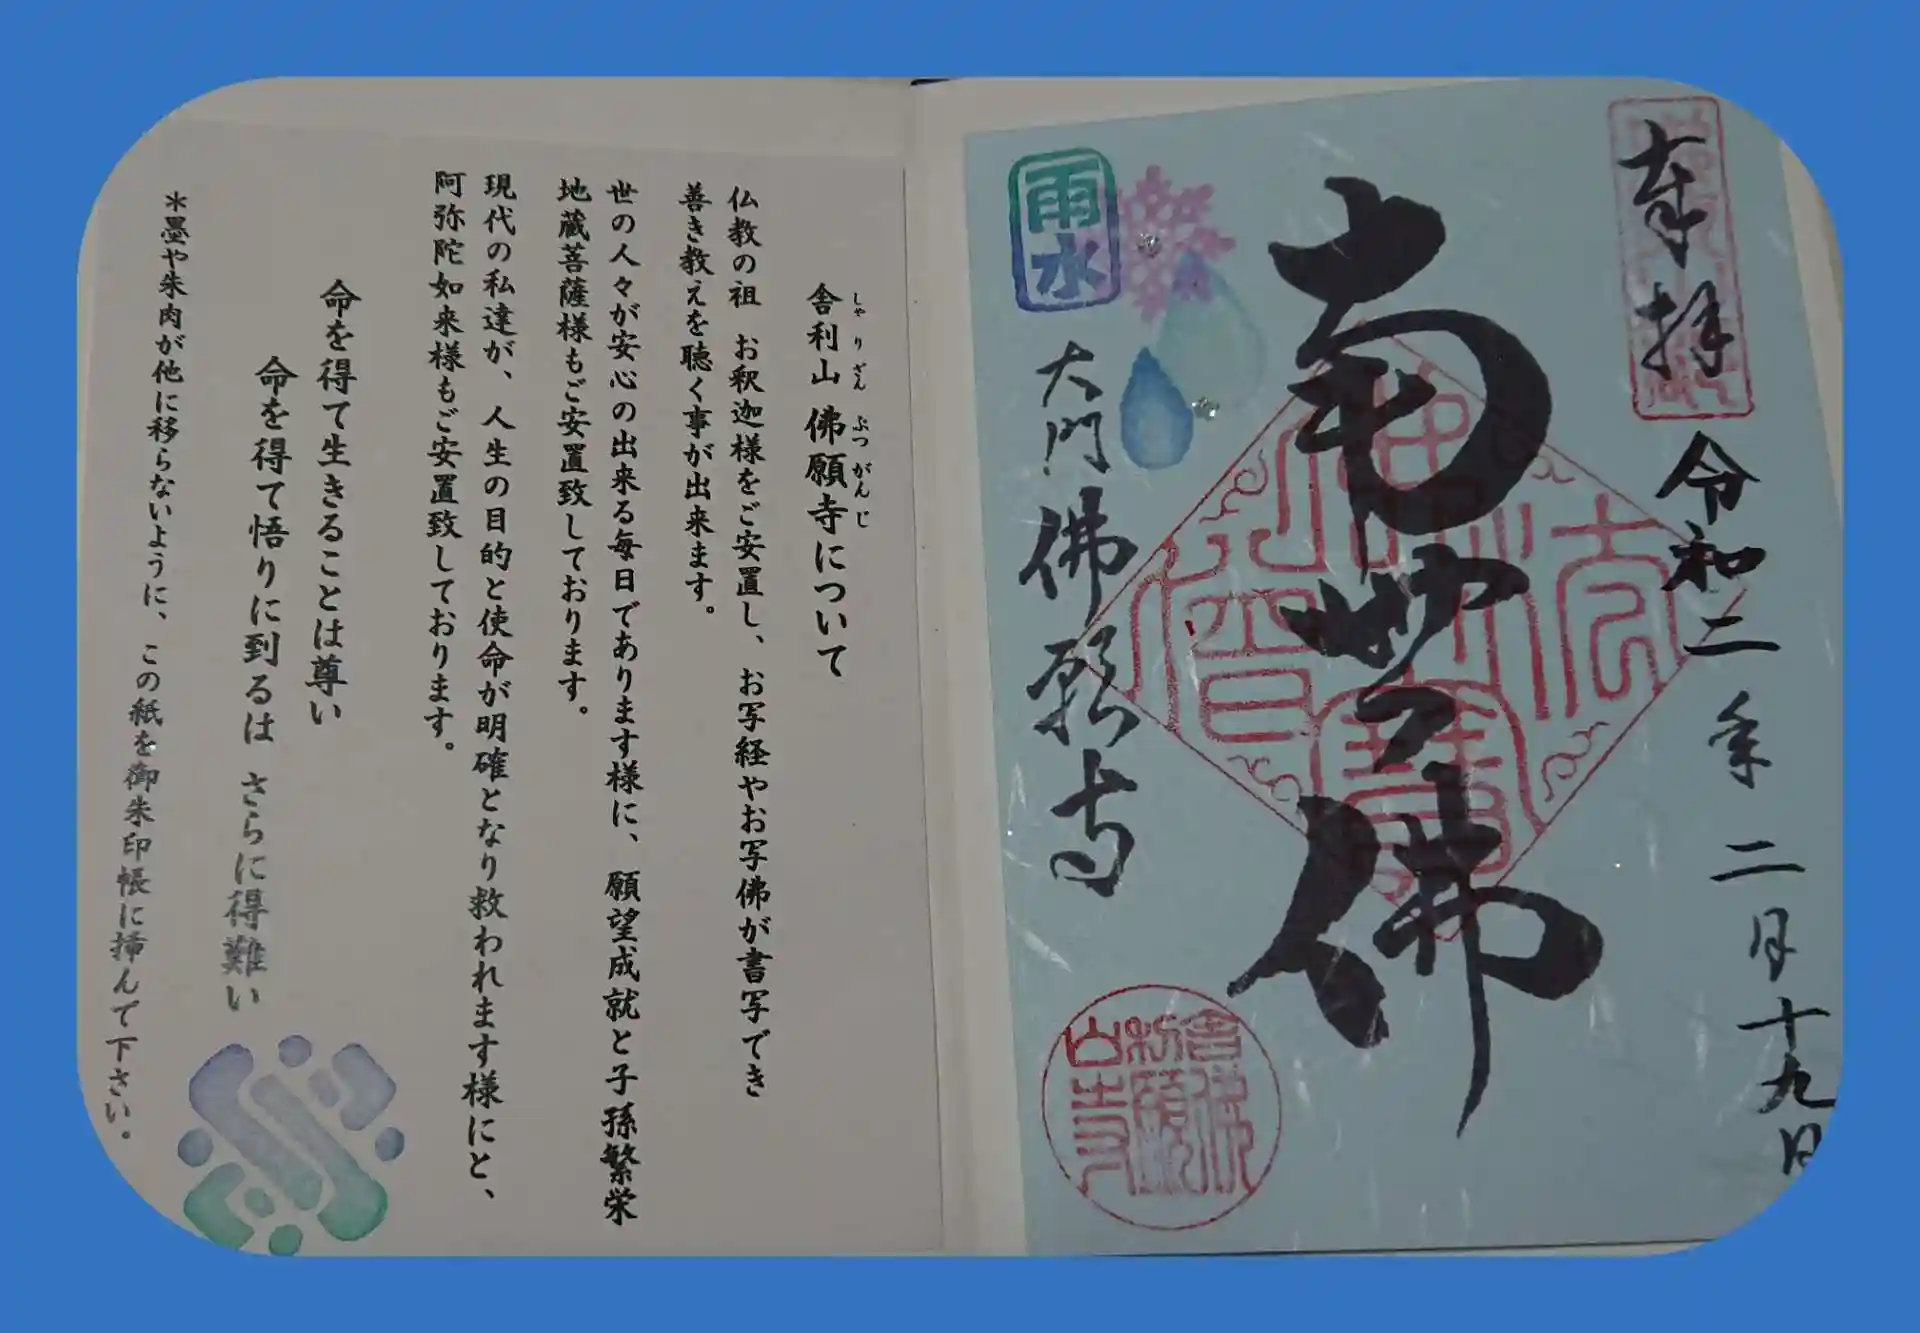 奉拝
令和二年二月十九日
南無佛
雨水
大門佛願寺
舎利山
佛願寺
舎利山 佛願寺について
しゃりざん ぶつがんじ
仏教の祖 お釈迦様をご安置し、お写経やお写佛が書写でき
善き教えを聴く事が出来ます。
世の人々が安心の出来る毎日であります様に、願望成就と子孫繁栄
地蔵菩薩様もご安置致しております。
現代の私達が、人生の目的と使命が明確となり救われます様にと、
阿弥陀如来様もご安置致しております。
命を得て生きることは尊い
命を得て悟りに到るは さらに得難い
＊墨や朱肉が他に移らないように、この紙を御朱印帳に挿んで下さい。